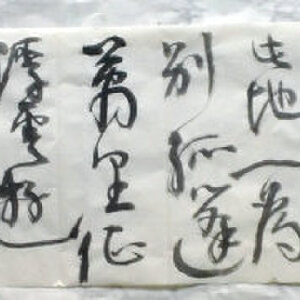 此地一為
別孤蓬
萬里征
浮雲游